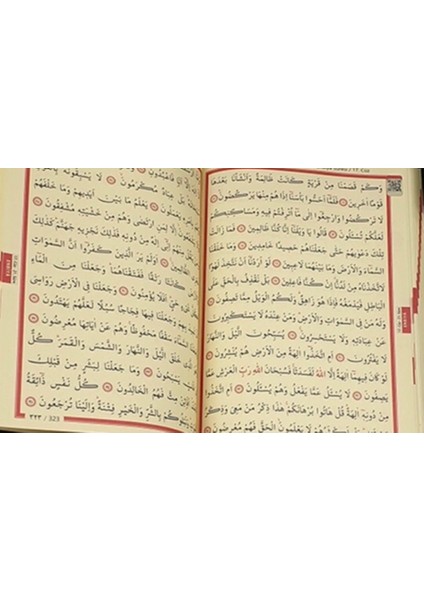 وَكَمْ قَصَمْنَا مِنْ قَرْيَةٍ كَانَتْ ظَالِمَةً وَاَنْشَأْنَا بَعْدَهَا
قَوْمًا اٰخَرٖينَ فَلَمَّٓا اَحَسُّوا بَأْسَنَٓا اِذَا هُمْ مِنْهَا يَرْكُضُونَ
لَا تَرْكُضُوا وَارْجِعُٓوا اِلٰى مَٓا اُتْرِفْتُمْ فٖيهِ وَمَسَاكِنِكُمْ
لَعَلَّكُمْ تُسْـَٔلُونَ قَالُوا يَا وَيْلَنَٓا اِنَّا كُنَّا ظَالِمٖينَ فَمَا زَالَتْ
تِلْكَ دَعْوٰيهُمْ حَتّٰى جَعَلْنَاهُمْ حَصٖيدًا خَامِدٖينَ وَمَا خَلَقْنَا
السَّمَٓاءَ وَالْاَرْضَ وَمَا بَيْنَهُمَا لَاعِبٖينَ لَوْ اَرَدْنَٓا اَنْ نَتَّخِذَ لَهْوًا
لَاتَّخَذْنَاهُ مِنْ لَدُنَّٓا اِنْ كُنَّا فَاعِلٖينَ بَلْ نَقْذِفُ بِالْحَقِّ عَلَى
الْبَاطِلِ فَيَدْمَغُهُ فَاِذَا هُوَ زَاهِقٌ وَلَكُمُ الْوَيْلُ مِمَّا تَصِفُونَ
وَلَهُ مَنْ فِي السَّمٰوَاتِ وَالْاَرْضِ وَمَنْ عِنْدَهُ لَا يَسْتَكْبِرُونَ
عَنْ عِبَادَتِهٖ وَلَا يَسْتَحْسِرُونَ يُسَبِّحُونَ الَّيْلَ وَالنَّهَارَ
لَا يَفْتُرُونَ اَمِ اتَّخَذُٓوا اٰلِهَةً مِنَ الْاَرْضِ هُمْ يُنْشِرُونَ
لَوْ كَانَ فٖيهِمَٓا اٰلِهَةٌ اِلَّا اللّٰهُ لَفَسَدَتَا فَسُبْحَانَ اللّٰهِ رَبِّ الْعَرْشِ عَمَّا
يَصِفُونَ لَا يُسْـَٔلُ عَمَّا يَفْعَلُ وَهُمْ يُسْـَٔلُونَ اَمِ اتَّخَذُوا
مِنْ دُونِهٖٓ اٰلِهَةً قُلْ هَاتُوا بُرْهَانَكُمْ هٰذَا ذِكْرُ مَنْ مَعِيَ وَذِكْرُ
لَا يَعْلَمُونَ الْحَقَّ فَهُمْ مُعْرِضُونَ
عِبَادٌ مُكْرَمُونَ لَا يَسْبِقُونَهُ بِالْقَوْلِ
يَعْمَلُونَ يَعْلَمُ مَا بَيْنَ اَيْدٖيهِمْ وَمَا خَلْفَهُمْ
اِلَّا لِمَنِ ارْتَضٰى وَهُمْ مِنْ خَشْيَتِهٖ مُشْفِقُونَ
مِنْهُمْ اِنّٖٓي اِلٰهٌ مِنْ دُونِهٖ فَذٰلِكَ نَجْزٖيهِ جَهَنَّمَ كَذٰلِكَ
الظَّالِمٖينَ اَوَلَمْ يَرَ الَّذٖينَ كَفَرُٓوا اَنَّ السَّمٰوَاتِ
كَانَتَا رَتْقًا فَفَتَقْنَاهُمَا وَجَعَلْنَا مِنَ الْمَٓاءِ
حَيٍّ اَفَلَا يُؤْمِنُونَ وَجَعَلْنَا فِي الْاَرْضِ رَوَاسِيَ
وَجَعَلْنَا فٖيهَا فِجَاجًا سُبُلًا لَعَلَّهُمْ يَهْتَدُونَ
السَّمَٓاءَ سَقْفًا مَحْفُوظًا وَهُمْ عَنْ اٰيَاتِهَا مُعْرِضُونَ
خَلَقَ الَّيْلَ وَالنَّهَارَ وَالشَّمْسَ وَالْقَمَرَ كُلٌّ
يَسْبَحُونَ وَمَا جَعَلْنَا لِبَشَرٍ مِنْ قَبْلِكَ
مِتَّ فَهُمُ الْخَالِدُونَ كُلُّ نَفْسٍ ذَٓائِقَةُ
بِالشَّرِّ وَالْخَيْرِ فِتْنَةً وَاِلَيْنَا تُرْجَعُونَ
٣٢٣ / 323